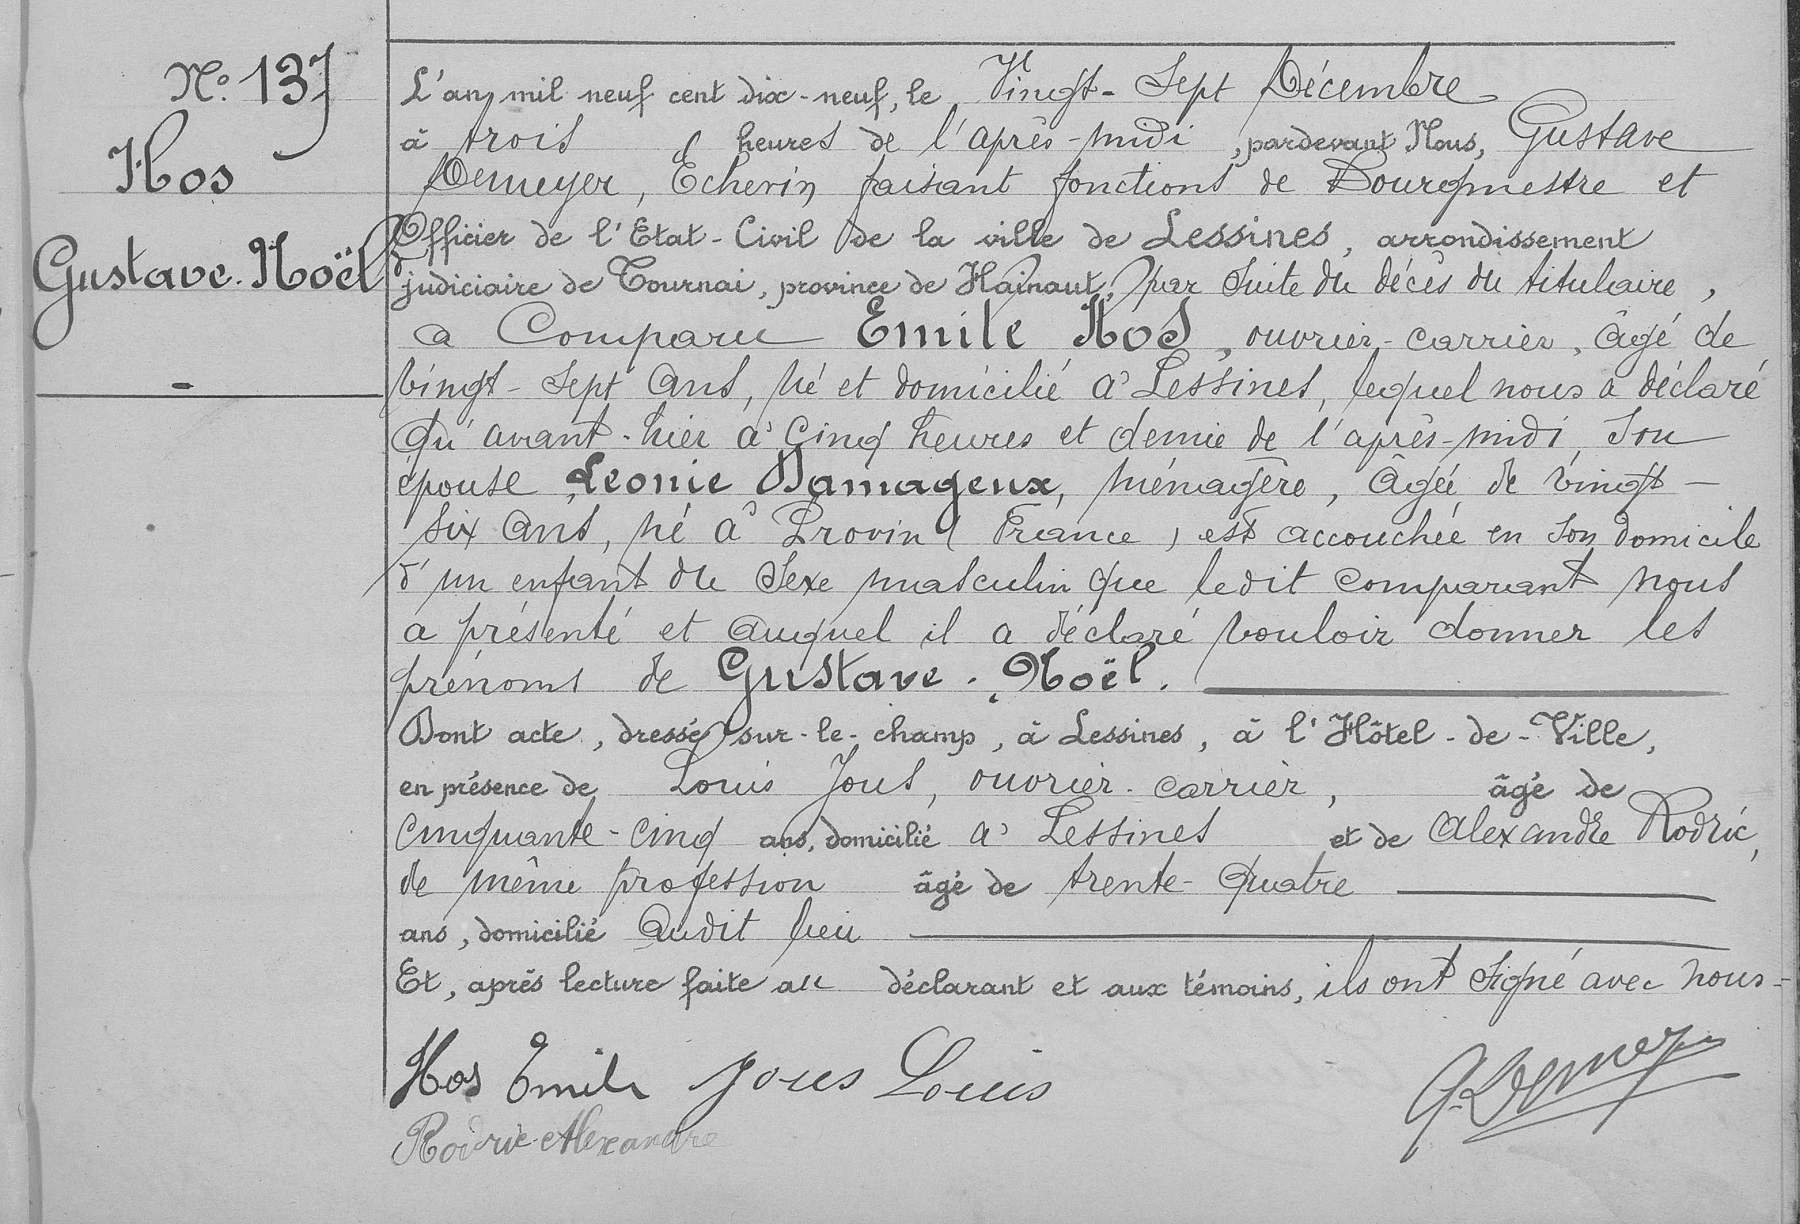 N° 137
Hos
Gustave. Noël
L'an mil neuf cent dix-neuf, le Vingt-Sept Décembre
à trois heures de l'après-midi, pardevant Nous, Gustave
Demeyer, Echevin faisant fonctions de Bourgmestre et
Officier de l'Etat-Civil de la ville de Lessines, arrondissement
judiciaire de Tournai, province de Hainaut, par suite du décès du titulaire,
a Comparu Emile Hos, ouvrier-carrier, âgé de
vingt-sept ans, né et domicilié à Lessines, lequel nous a déclaré
qu'avant-hier à cinq heures et demie de l'après-midi, son
épouse Léonie Damageux, ménagère, âgée de vingt-
six ans, né à Provin (France) est accouchée en son domicile
d'un enfant du sexe masculin que ledit comparant nous
a présenté et auquel il a déclaré vouloir donner les
prénoms de Gustave. Noël.
Dont acte, dressé sur-le-champ, à Lessines, à l'Hôtel-de-Ville,
en présence de Louis Jous, ouvrier-carrier, âgé de
cinquante-cinq ans, domicilié à Lessines et de Alexandre Rodric,
de même profession âgé de trente-quatre
ans, domicilié audit lieu
Et, après lecture faite au déclarant et aux témoins, ils ont signé avec nous-
Hos Emile Jous Louis
G. Demeyer
Rodric Alexandre